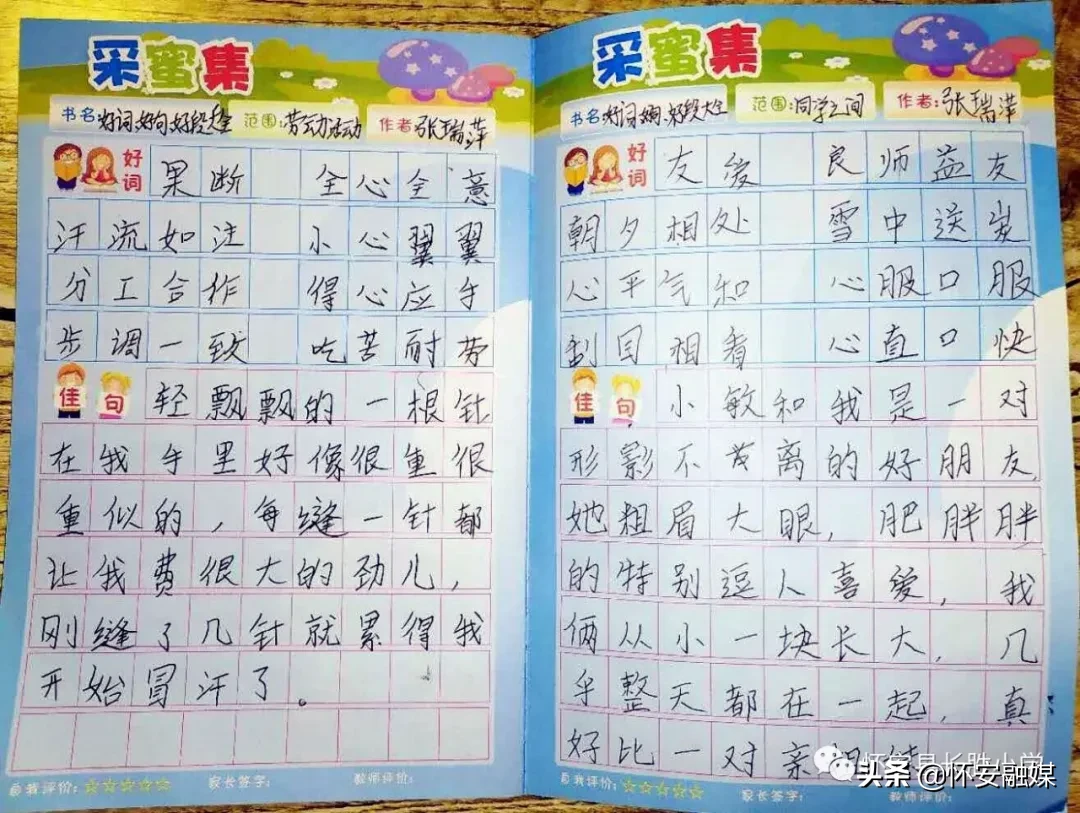 采蜜集
书名 好词好句好段大全 范围:劳动活动 作者:张瑞萍
好词 果断 全心全意
汗流如注 小心翼翼
分工合作 得心应手
步调一致 吃苦耐劳
佳句 轻飘飘的一根针
在我手里好像很重很
重似的,每缝一针都
让我费很大的劲儿,
刚缝了几针就累得我
开始冒汗了。
自我评价:☆☆☆☆☆ 家长签字: 教师评价:
采蜜集
书名:好词好句好段大全 范围:同学之间 作者:张瑞萍
好词 友爱 良师益友
朝夕相处 雪中送炭
心平气和 心服口服
刮目相看 心直口快
佳句 小敏和我是一对
形影不分离的好朋友,
她粗眉大眼,肥胖胖
的特别逗人喜爱,我
俩从小一块长大,几
乎整天都在一起,真
好比一对亲姐妹
自我评价:☆☆☆☆☆ 家长签字: 教师评价:
怀安县长胜小学
头条 @怀安融媒